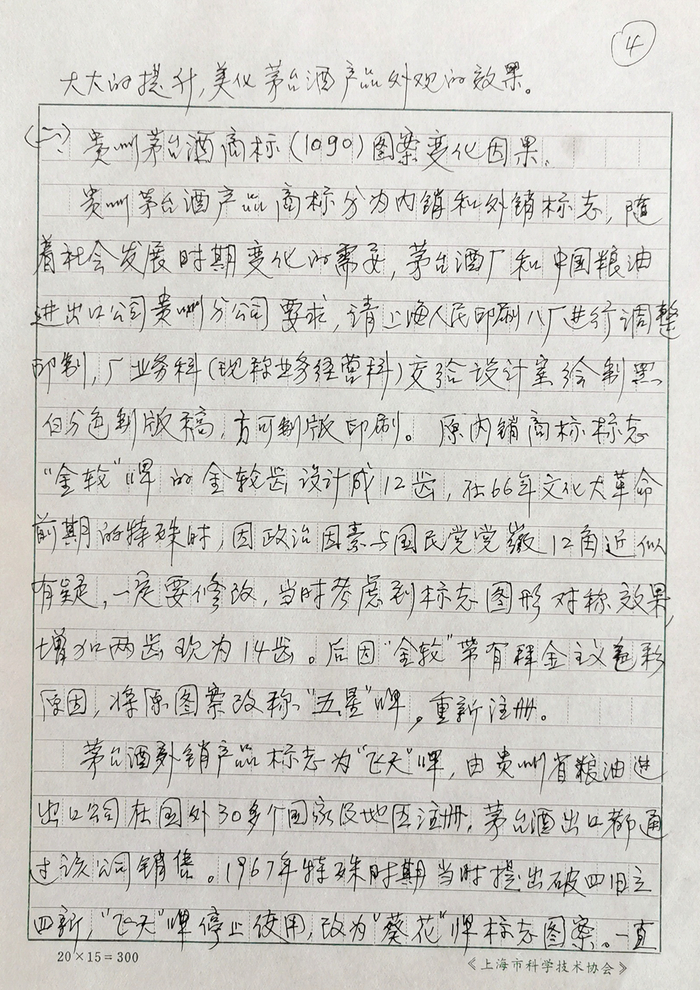 4
大大的提升,美化茅台酒产品外观的效果。
(二)贵州茅台酒商标(1090)图案变化因果、
贵州茅台酒产品商标分为内销和外销标志,随
着社会发展时期变化的需要,茅台酒厂和中国粮油
进出口公司贵州分公司要求,请上海人民印刷八厂进行调整
印制,厂业务科(现称业务经营科)交给设计室绘制黑
白分色制版稿,方可制版印刷。原内销商标标志
“金轮”牌的金轮齿设计成12齿,在66年文化大革命
前期的特殊时,因政治因素与国民党党徽12角近似
有疑,一定要修改,当时考虑到标志图形对称效果,
增加两齿改为14齿。后因“金轮”带有拜金主义色彩
原因,将原图案改称“五星”牌,重新注册。
茅台酒外销产品标志为“飞天”牌,由贵州省粮油进
出口公司在国外30多个国家及地区注册,茅台酒出口都通
过该公司销售。1967年特殊时期当时提出破四旧立
四新,“飞天”牌停止使用,改为“葵花”牌标志图案。一直
20×15=300
《上海市科学技术协会》